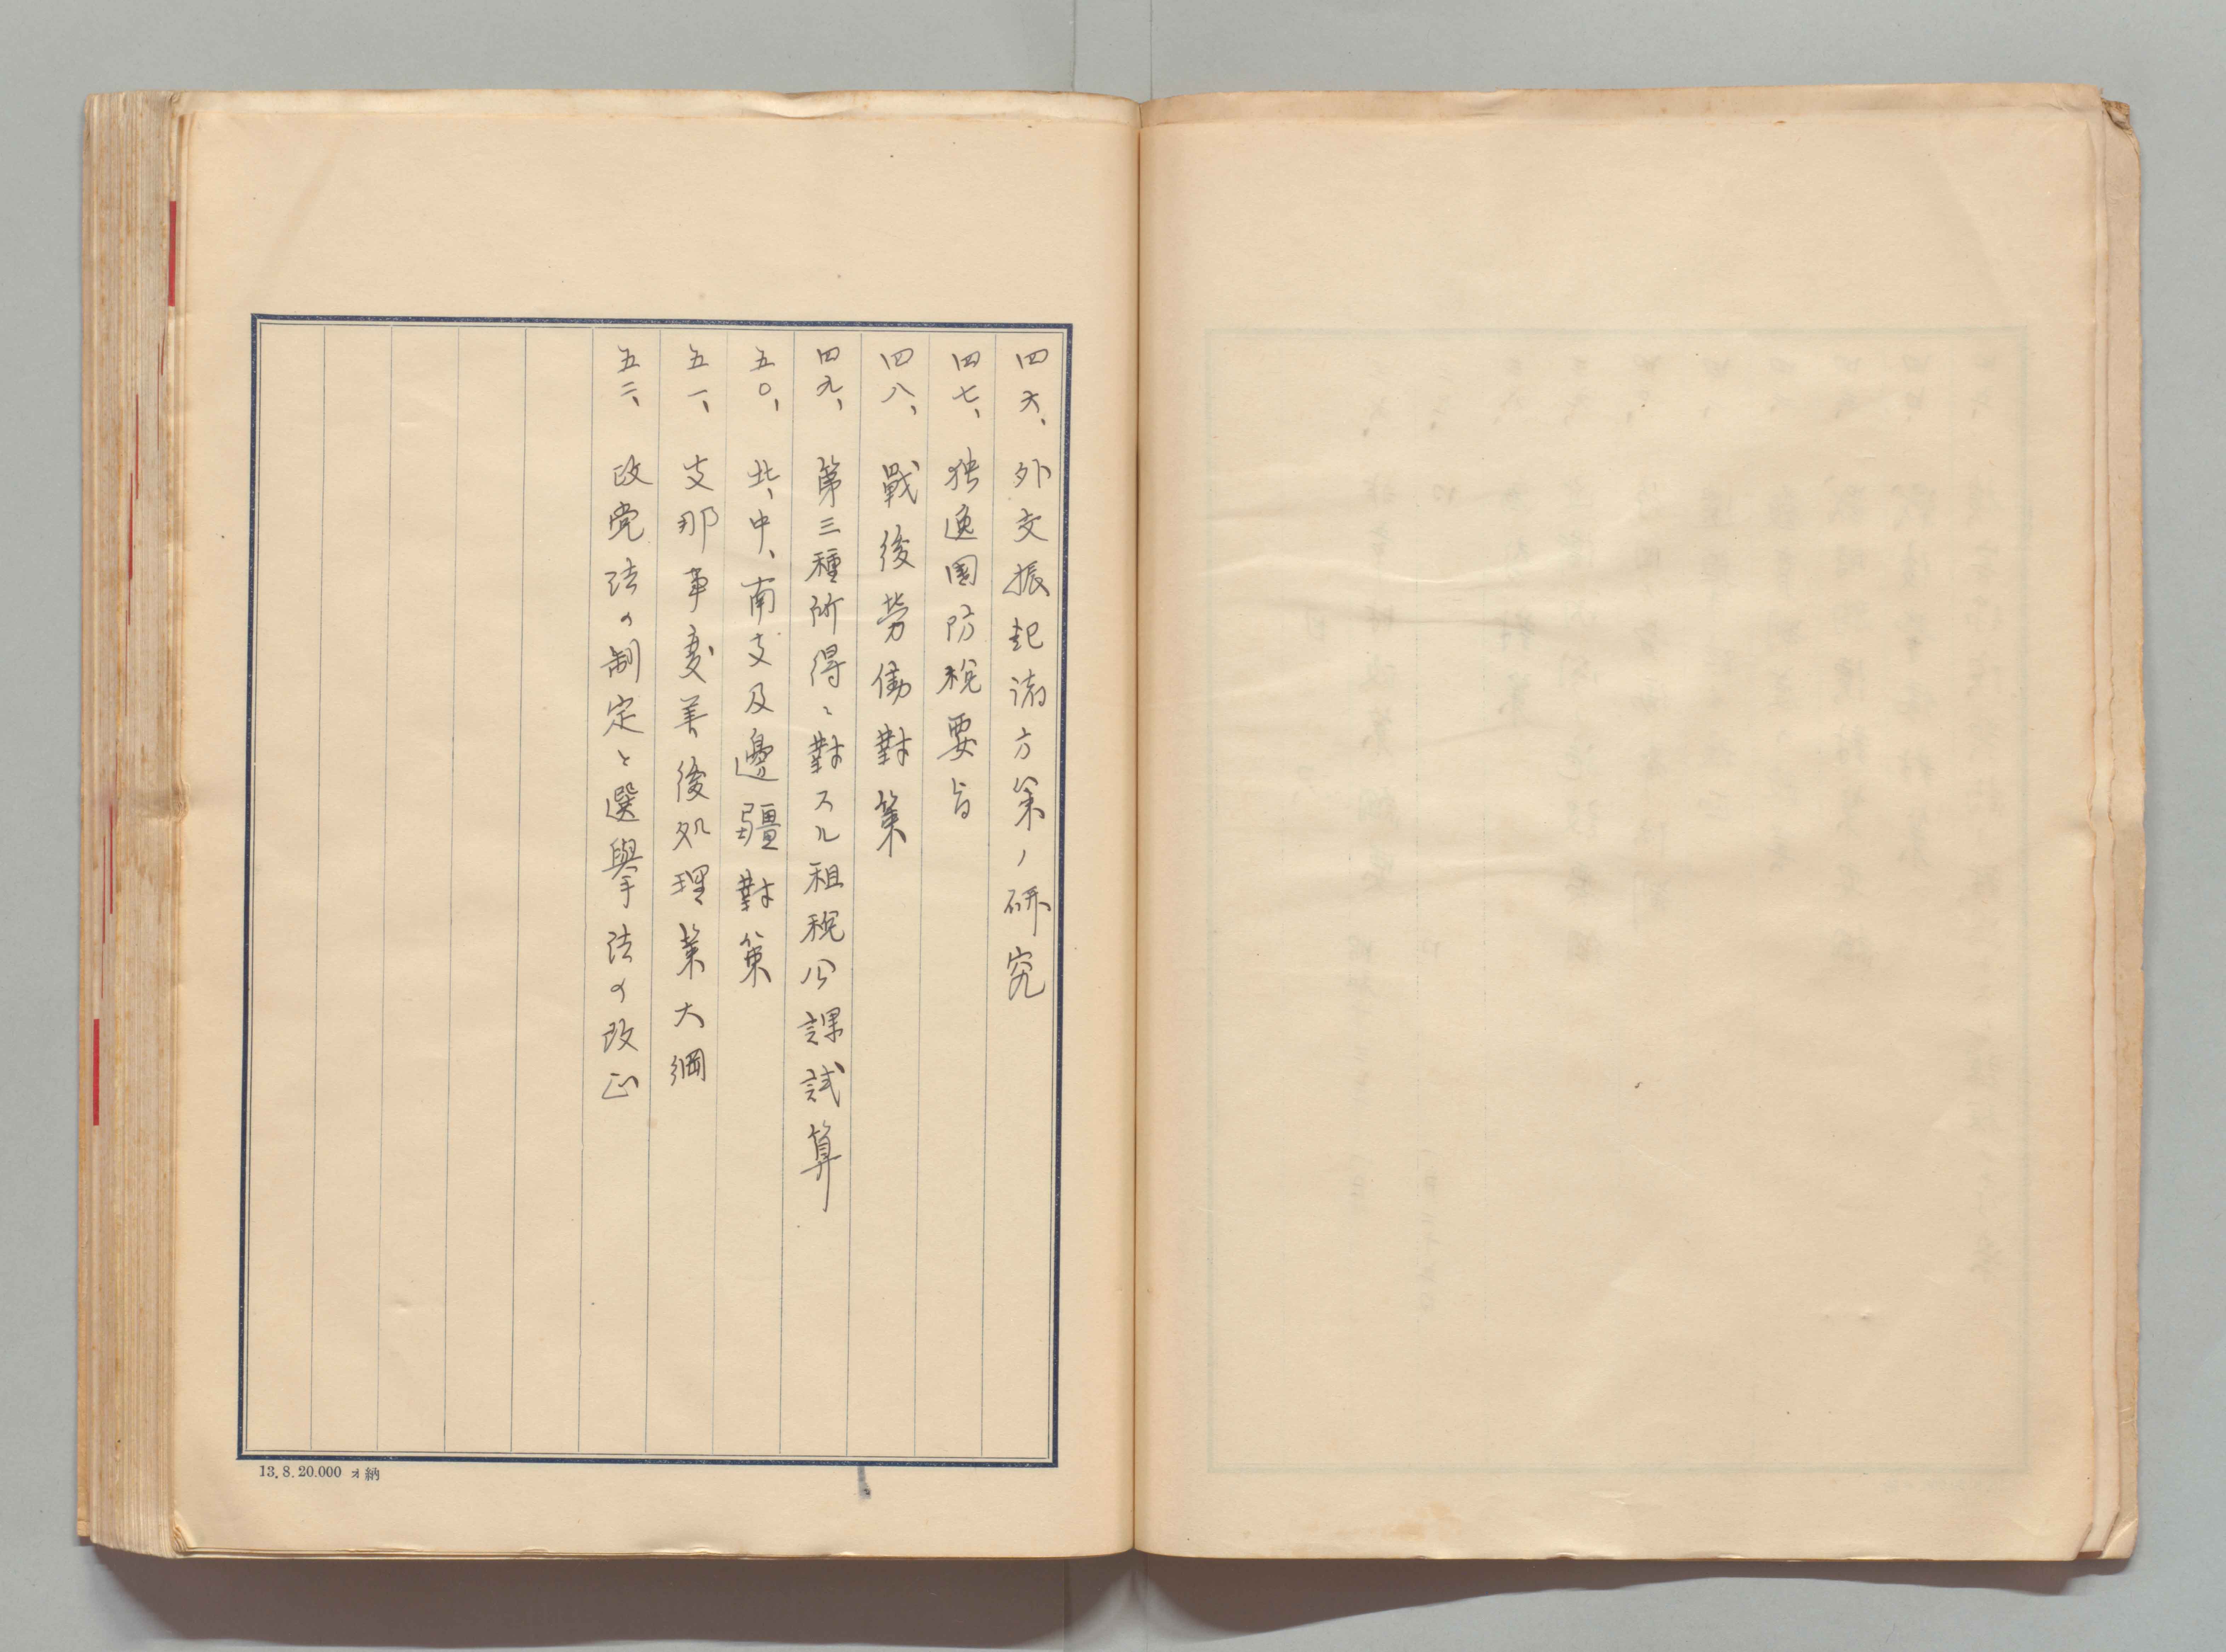 四六、外交振起諸方策ノ研究
四七、独逸国防税要旨
四八、戰後労働對策
四九、第三種所得ニ對スル租税公課試算
五〇、北、中、南支及邊疆對策
五一、支那事変善後処理策大綱
五二、政党法の制定と選擧法の改正
13.8.20.000 オ納